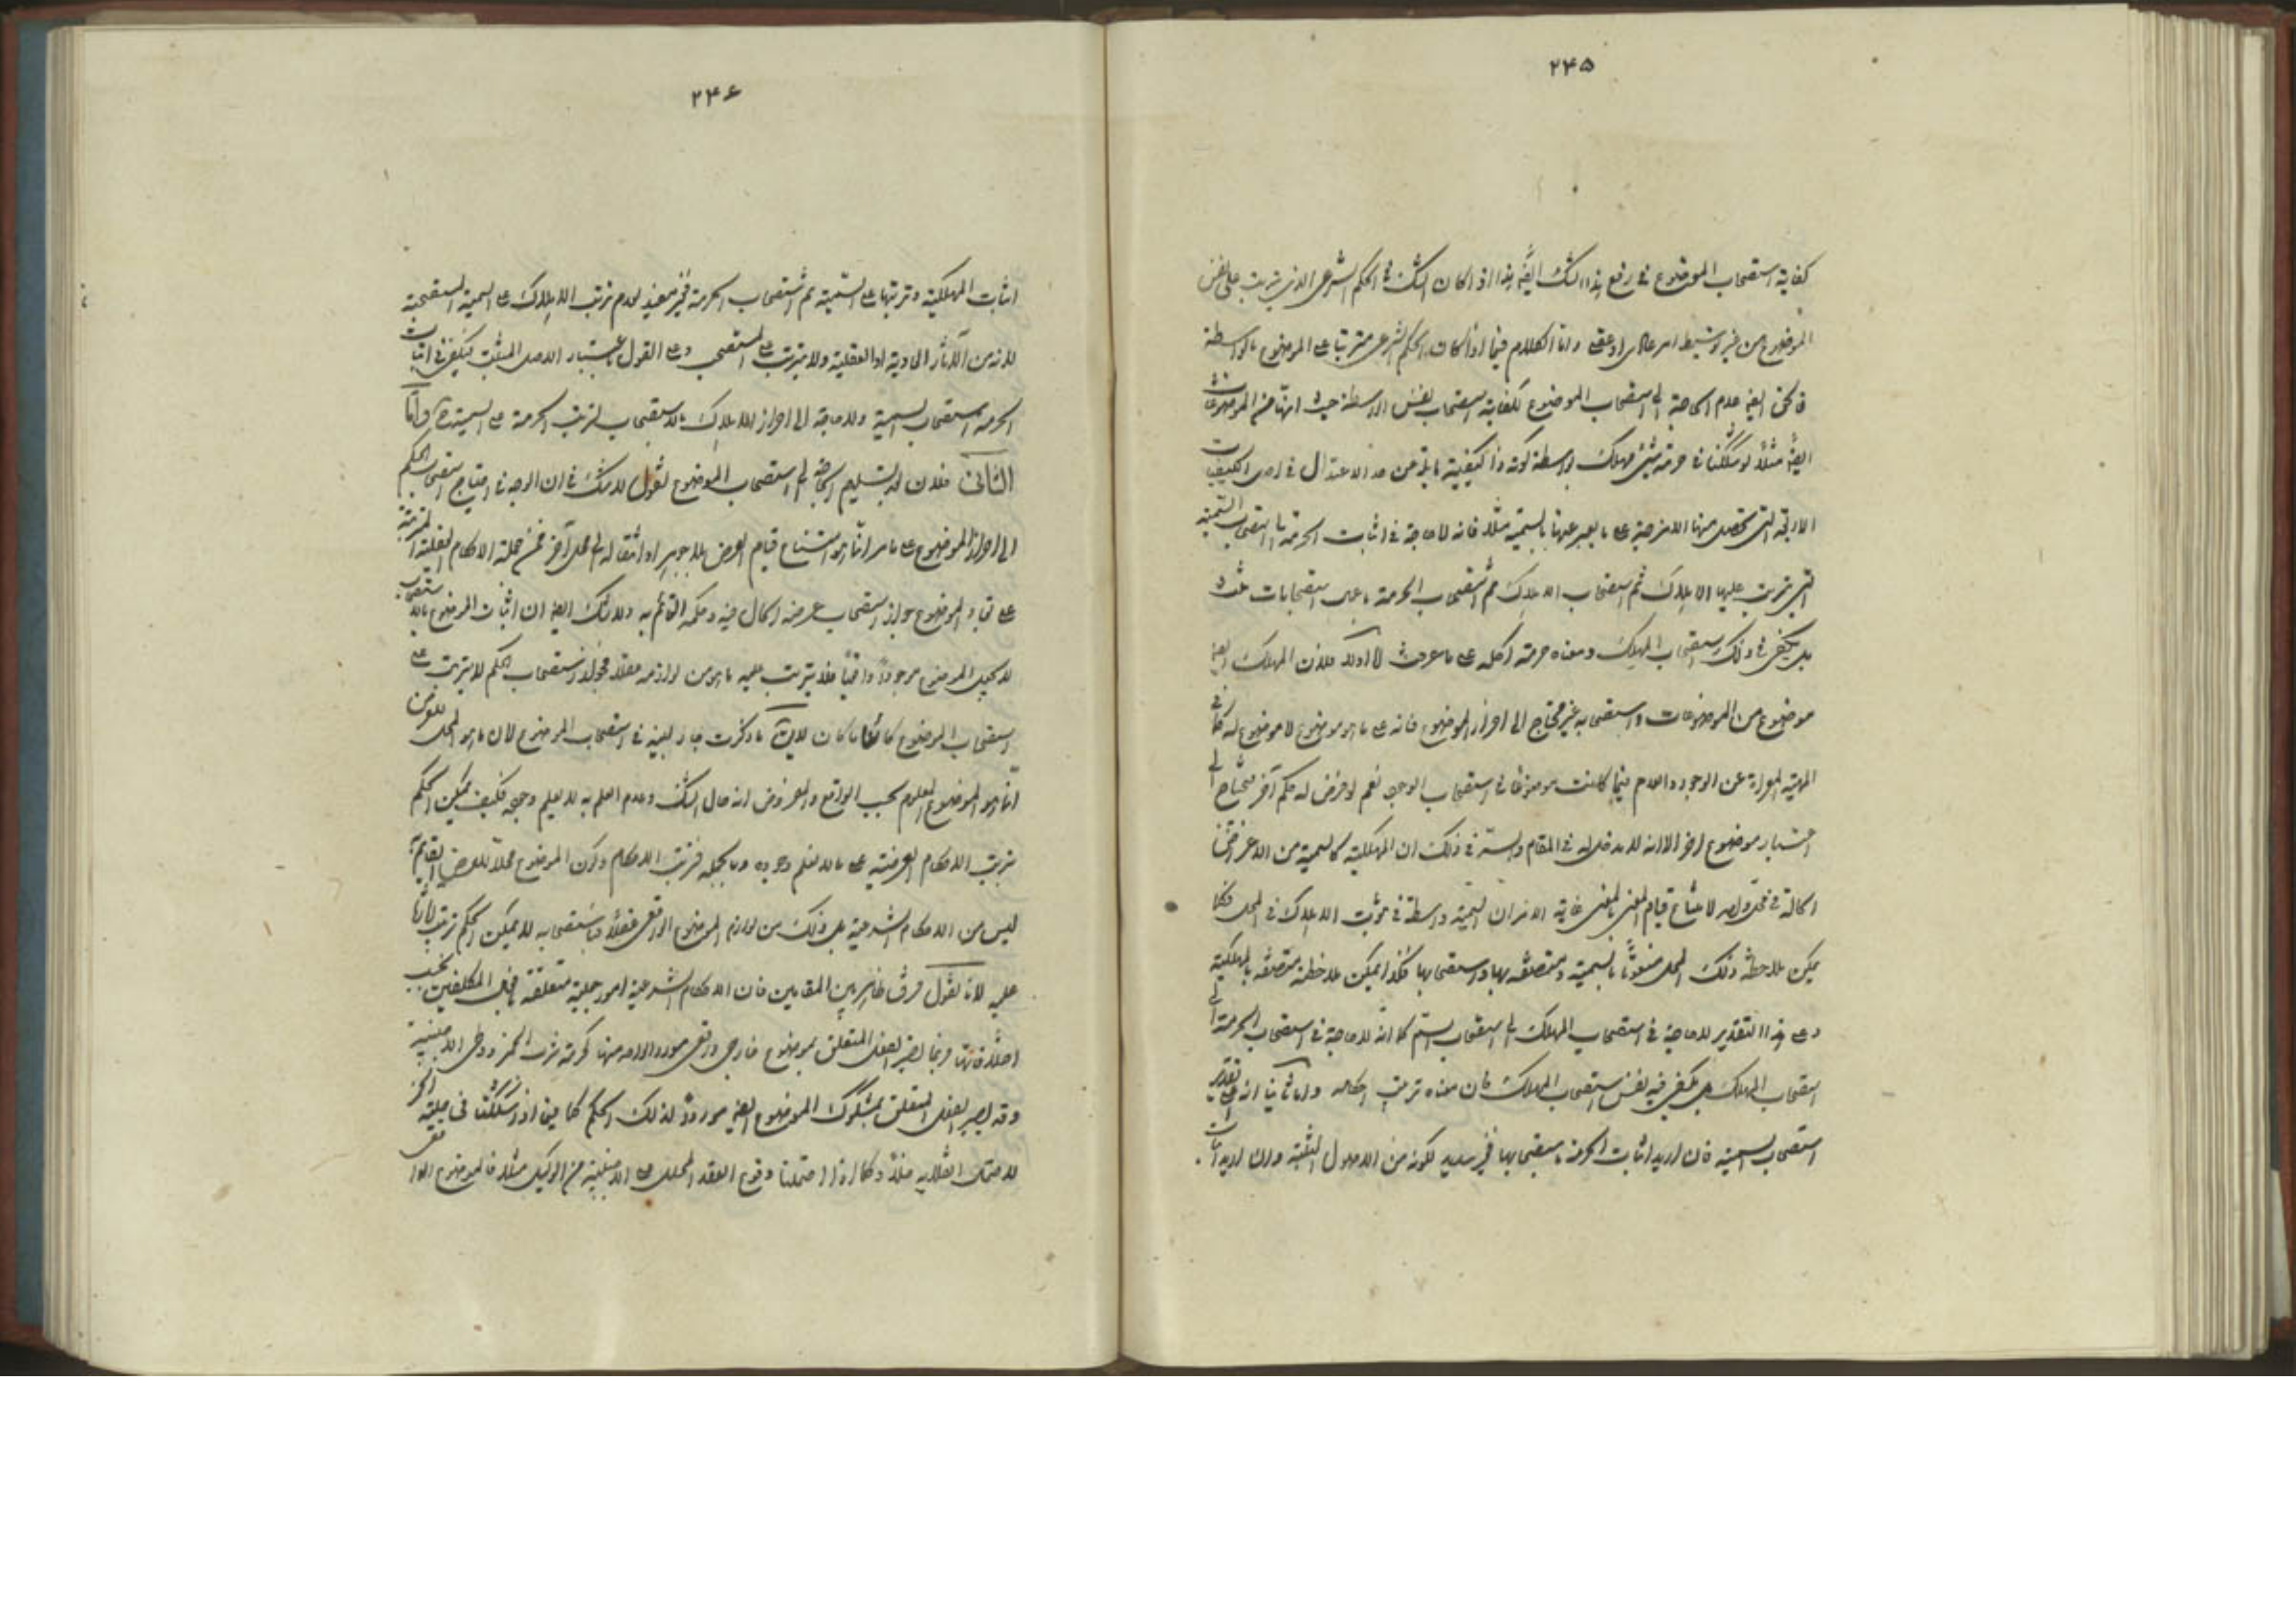 ٢٤٥
كفاية استصحاب الموضوع في رفع هذا الشك ايضا هذا اذا كان الشك في الحكم الشرعي الذي يترتب على نفس
الموضوع من غير توسيط امر عادي او عقلي واما الكلام فيما اذا كان الحكم الشرعي مترتبا على الموضوع بالواسطة
فالحق ايضا عدم الحاجة الى استصحاب الموضوع لكفاية استصحاب نفس الواسطة حيث انها من الموضوعات
ايضا مثلا لو شككنا في حرمة شيء مهلك بواسطة كونه ذا كيفية خارجة عن حد الاعتدال في احدى الكيفيات
الاربعة التي تحصل منها الامزجة على ما يعبر عنها بالسمية مثلا فانه لا حاجة في اثبات الحرمة الى استصحاب السمية
التي يترتب عليها الاهلاك ثم استصحاب الاهلاك ثم استصحاب الحرمة باعمال استصحابات ثلث
بل يكفي في ذلك استصحاب المهلك ومعناه حرمة اكله على ما عرفت اما اولا فلان المهلك ايضا
موضوع من الموضوعات واستصحابه غير محتاج الى احراز الموضوع فانه على ما هو موضوع لا موضوع له كما في
المهية المعراة عن الوجود والعدم فيما كانت موضوعا في استصحاب الوجود نعم لو فرض له حكم آخر يحتاج الى
اعتبار موضوع آخر الا انه لا مدخل له في المقام والسر في ذلك ان المهلكية كالسمية من الاعراض
الحالة في محل واحد لامتناع قيام المعنى بالمعنى غاية الامر ان السمية واسطة في ثبوت الاهلاك في المحل فكما
يمكن ملاحظة ذلك المحل منعوتا بالسمية ومتصفة بها واستصحابها فكذا يمكن ملاحظته متصفة بالمهلكية
وعلى هذا التقدير لا حاجة في استصحاب المهلك الى استصحاب السم كما انه لا حاجة في استصحاب الحرمة الى
استصحاب المهلك بل يكفي فيه نفس استصحاب المهلك فان معناه ترتيب احكامه واما ثانيا انه على تقدير
استصحاب السمية فان اريد اثبات الحرمة باستصحابها فغير سديد لكونه من الاصول المثبتة وان اريد اثبات
٢٤٦
اثبات المهلكية وترتبها على السمية ثم استصحاب الحرمة فغير مفيد لعدم ترتب الاهلاك على السمية المستصحبة
لانه من الآثار العادية او العقلية ولا يترتب على المستصحب وعلى القول باعتبار الاصل المثبت فيكفي في اثبات
الحرمة استصحاب السمية ولا حاجة الى احراز الاهلاك بالاستصحاب لترتب الحرمة على السمية واما
الثاني فلان بعد تسليم الحاجة الى استصحاب الموضوع نقول لا شك في ان الوجه في احتياج استصحاب الحكم
الى احراز الموضوع على ما مر انما هو امتناع قيام العرض بلا جوهر او انتقاله الى محل آخر فمن جملة الاحكام العقلية المترتبة
على بقاء الموضوع جواز استصحاب عرضه الحال فيه وحكمه القائم به ولا شك ايضا ان اثبات الموضوع بالاستصحاب
لا يجعل الموضوع موجودا واقعيا فلا يترتب عليه ما هو من لوازمه عقلا فجواز استصحاب الحكم لا يترتب على
استصحاب الموضوع كائنا ما كان لا يقال ما ذكرت جار بعينه في استصحاب الموضوع لان ما هو المحل للعرض
انما هو الموضوع المعلوم بحسب الواقع والمفروض انه حال الشك وعدم العلم به لا يعلم وجوده فكيف يمكن الحكم
بترتب الاحكام العرضية على ما لا نعلم وجوده وبالجملة فترتب الاحكام وكون الموضوع محلا للعرض القائم به
ليس من الاحكام الشرعية بل ذلك من لوازم الموضوع الواقعي عقلا فباستصحابه لا يمكن الحكم بترتب آثارها
عليه لانا نقول فرق ظاهر بين المقامين فان الاحكام الشرعية امور جعلية متعلقة بفعل المكلفين بحسب
اختلافها فربما يصير الفعل المتعلق بموضوع خارجي واقعي موردا لواحد منها كحرمة شرب الخمر ووطي الاجنبية
وقد يصير الفعل المتعلق بمشكوك الموضوع ايضا موردا لذلك الحكم كما فيما اذا شككنا في حلية الخمر
لاحتمال انقلابه مثلا وكما اذا احتملنا وقوع العقد المحلل على الاجنبية من الوكيل مثلا فالموضوع الواقعي